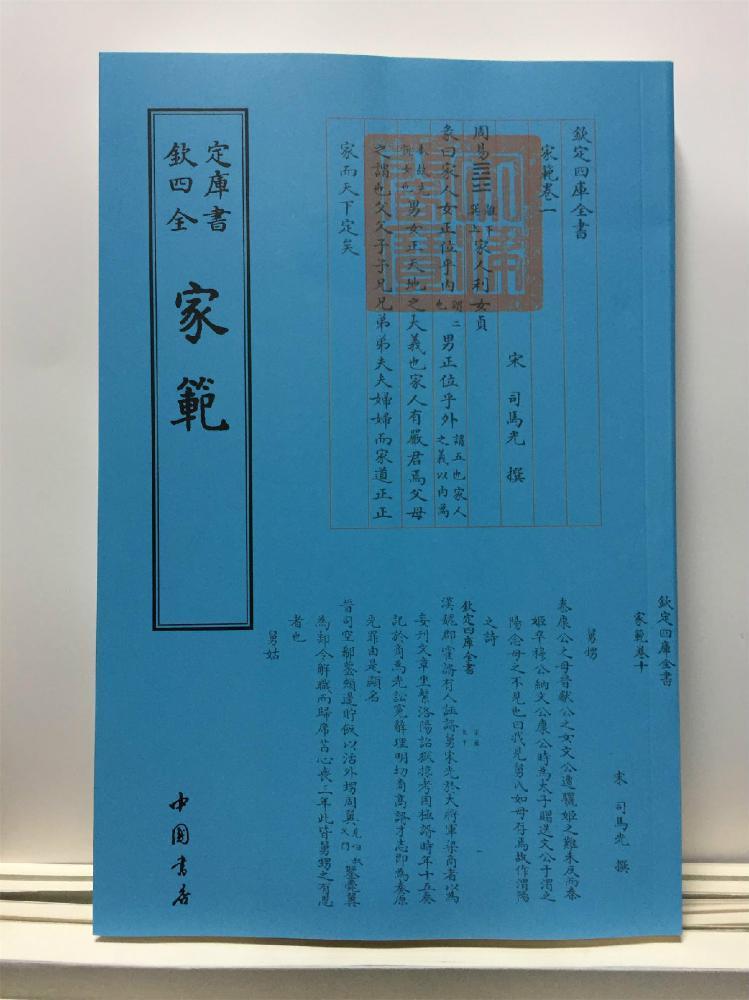 欽定四庫全書
家範
中國書店
欽定四庫全書
家範卷一
宋 司馬光 撰
周易䷤離下巽上家人利女貞
彖曰家人女正位乎內謂二也男正位乎外謂五也家人之義以內為
本故先說女也男女正天地之大義也家人有嚴君焉父母
之謂也父父子子兄兄弟弟夫夫婦婦而家道正正
家而天下定矣
欽定四庫全書
家範卷十
宋 司馬光 撰
舅甥
秦康公之母晉獻公之女文公遭驪姬之難未反而秦
姬卒穆公納文公康公時為太子贈送文公于渭之
陽念母之不見也曰我見舅氏如母存焉故作渭陽
之詩
欽定四庫全書
漢魏郡霍諝有人誣諝舅宋光於大將軍梁商者以為
妄刊文章坐繫洛陽詔獄掠考困極諝時年十五奏
記於商為光訟冤辭理明切商高諝才志即為奏原
光罪由是顯名
晉司空郗鑒頰邊貯飯以活外甥周翼鑒薨翼
為剡令解職而歸席苫心喪三年此皆舅甥之有恩
者也
舅姑